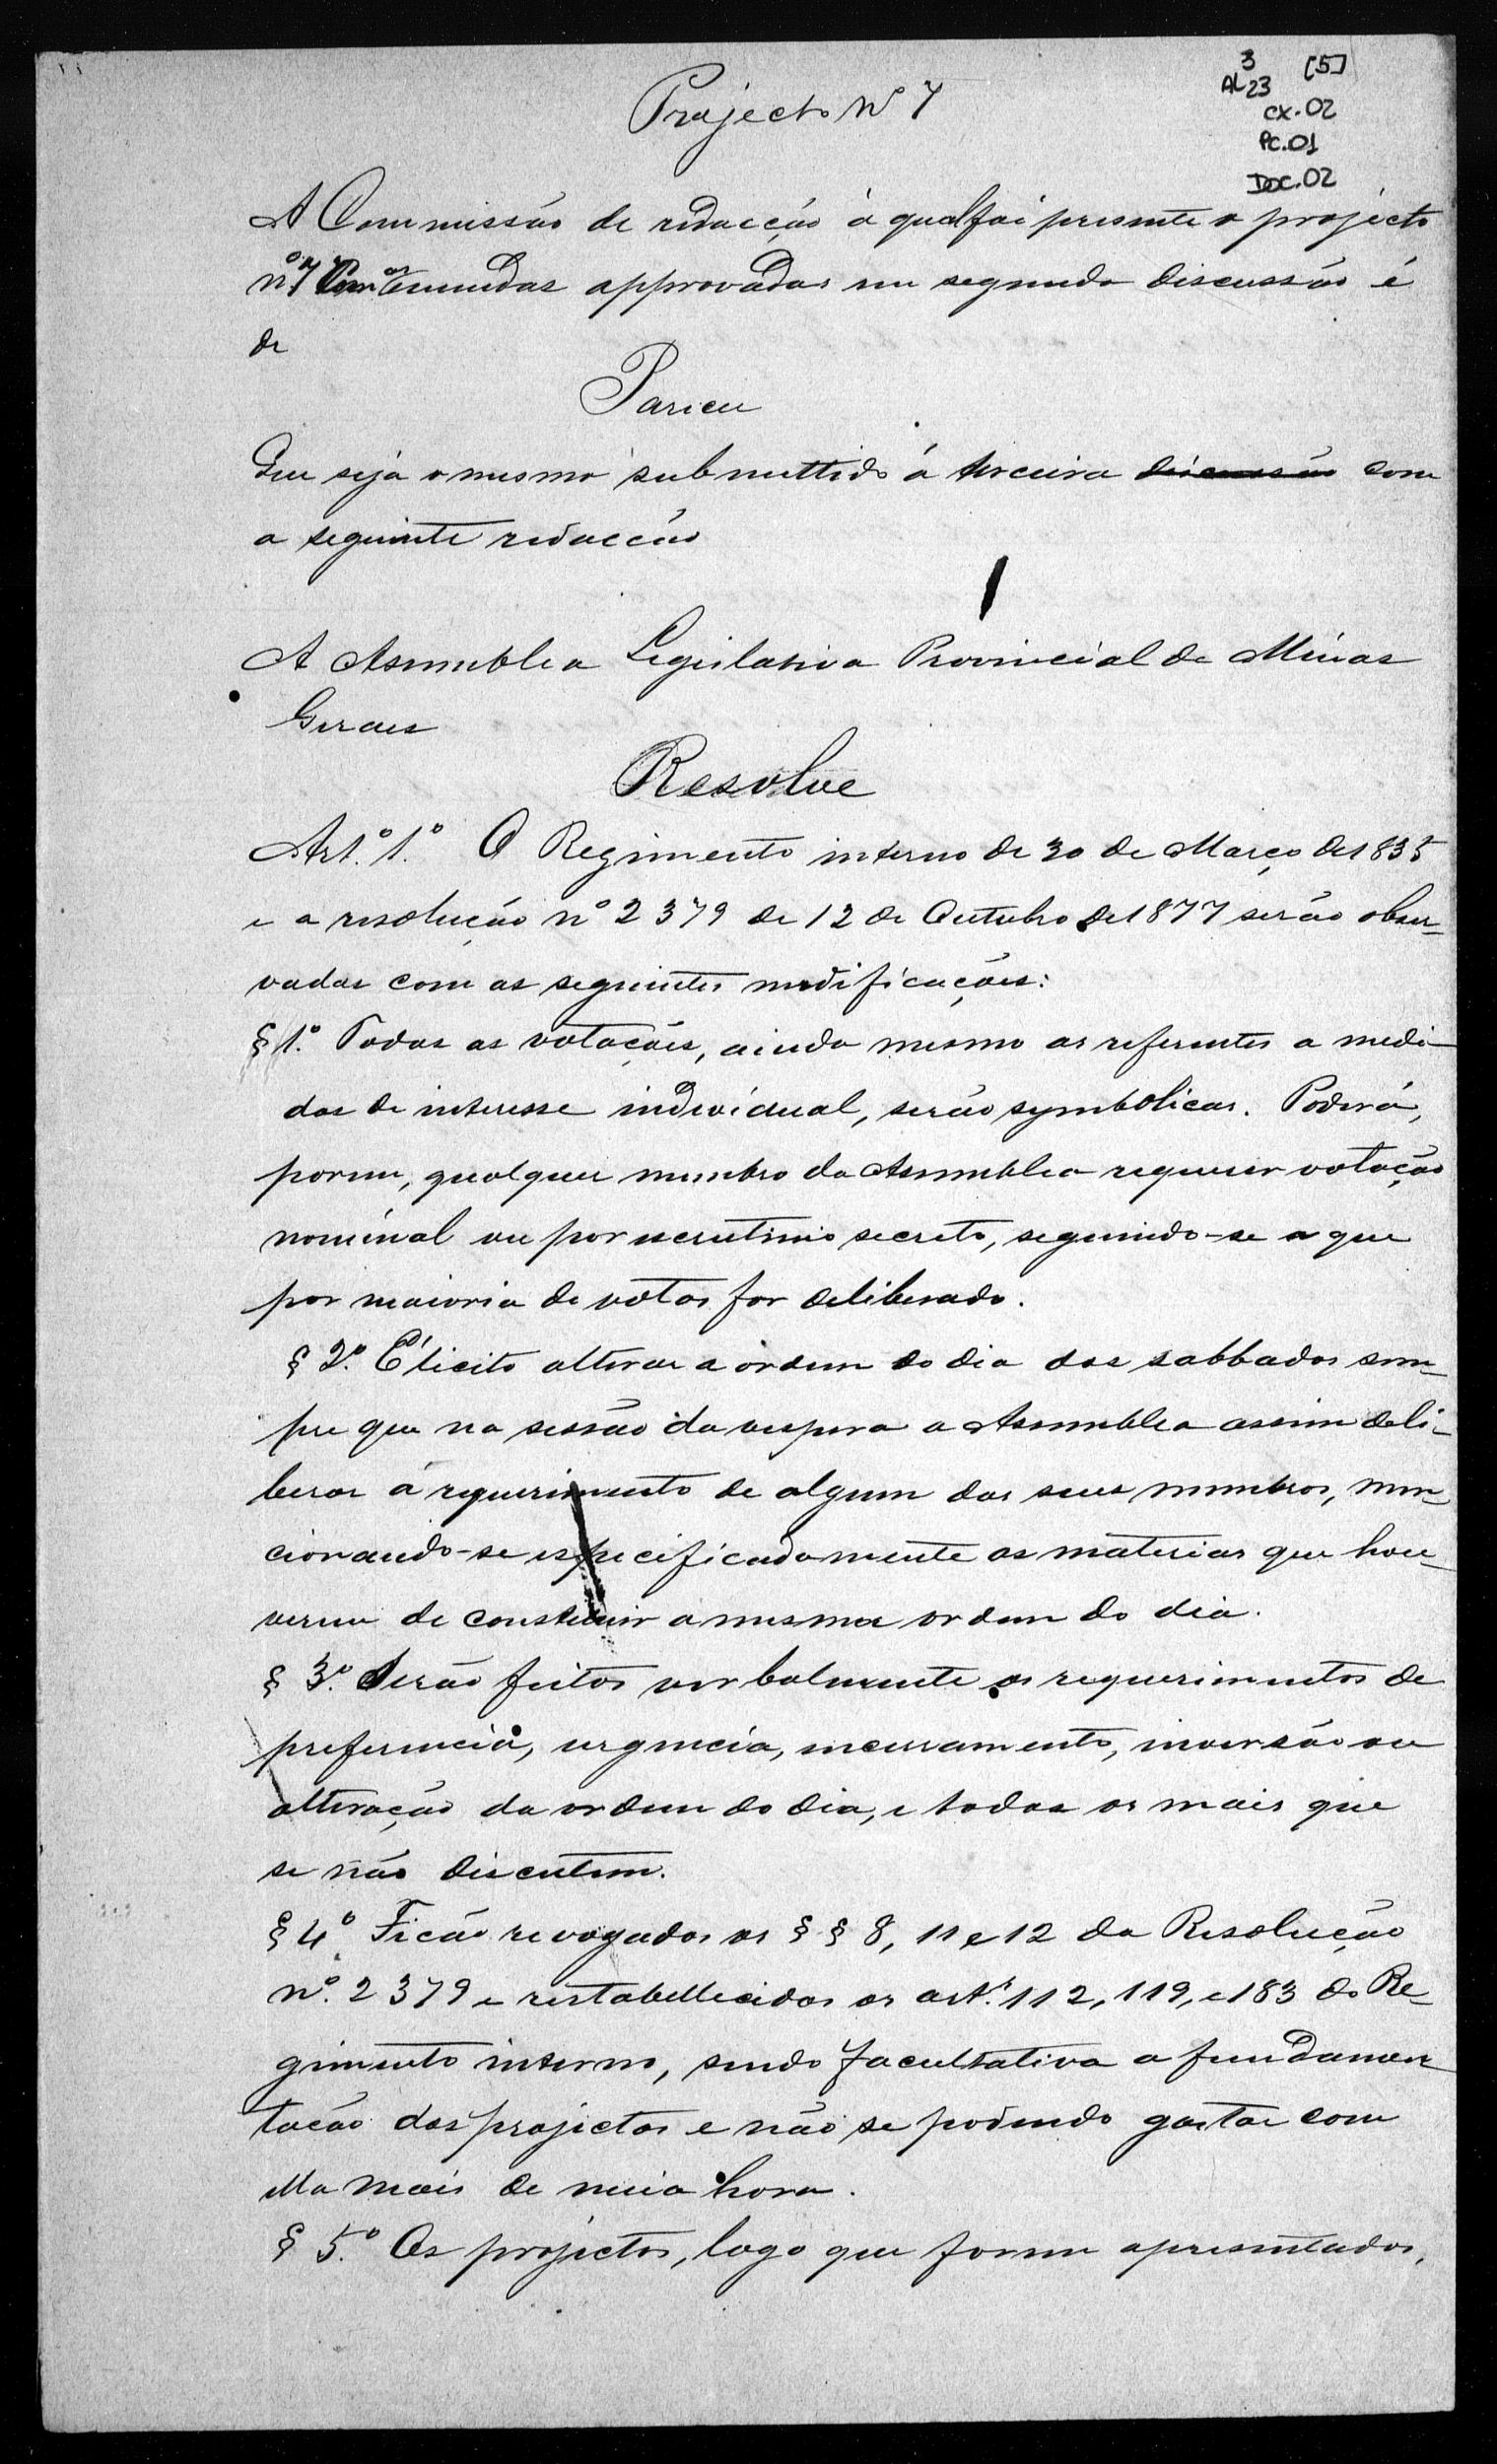 3 [5]
AL 23
CX.02
PC.01
DOC.02
Projecto Nº 7
A Commissão de redacção á qual foi presente o projecto
nº 7 com as emendas approvadas em segunda discussão é
de
Parecer
Que seja o mesmo submettido á terceira discussão com
a seguinte redacção
A Assemblea Legislativa Provincial de Minas
Geraes
Resolve
Art.º 1.º O Regimento interno de 30 de Março de 1835
e a resolução nº 2379 de 12 de Outubro de 1877 serão obser-
vadas com as seguintes modificações:
§ 1.º Todas as votações, ainda mesmo as referentes a medi-
das de interesse individual, serão symbolicas. Poderá,
porem, qualquer membro da Assemblea requerer votação
nominal ou por escrutinio secreto, seguindo-se o que
por maioria de votos for deliberado.
§ 2.º É licito alterar a ordem do dia dos sabbados sem-
pre que na sessão da vespera a Assemblea assim deli-
berar á requerimento de algum dos seus membros, men-
cionando-se especificadamente as materias que hou-
verem de constituir a mesma ordem do dia.
§ 3.º Serão feitos verbalmente os requerimentos de
preferencia, urgencia, encerramento, inversão ou
alteração da ordem do dia, e todos os mais que
se não discutem.
§ 4.º Ficão revogados os § § 8, 11 e 12 da Resolução
nº. 2379 e restabellecidos os art.s 112, 119, e 183 do Re-
gimento interno, sendo facultativa a fundamen-
tação dos projectos e não se podendo gastar com
ella mais de meia hora.
§ 5.º Os projectos, logo que forem apresentados,